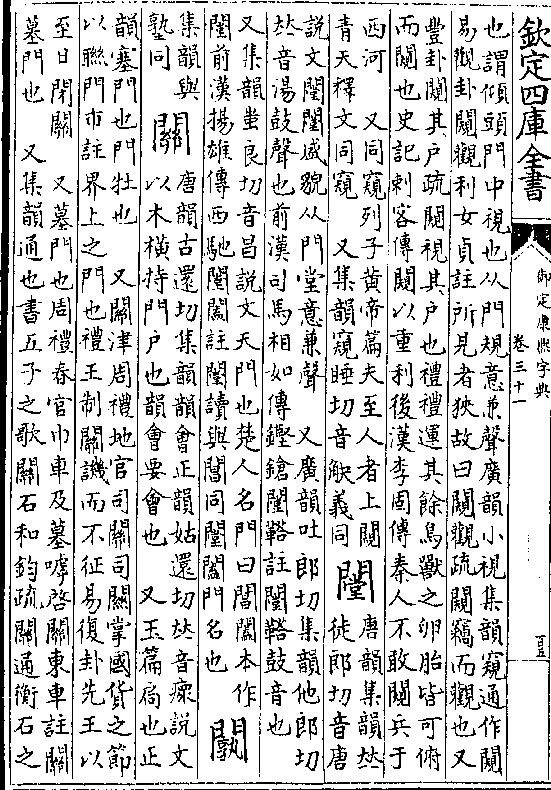 欽定四庫全書
御定康熙字典
卷三十一
也謂傾頭門中視也从門規意兼聲廣韻小視集韻窺通作闚
易觀卦闚觀利女貞註所見者狹故曰闚觀疏闚竊而觀也又
豐卦闚其戶疏闚視其戶也禮禮運其餘鳥獸之卵胎皆可俯
而闚也史記刺客傳闚以重利後漢李固傳秦人不敢闚兵于
西河 又同窺列子黃帝篇夫至人者上闚
青天釋文同窺 又集韻窺睡切音觖義同
闛 唐韻集韻𠀤
徒郎切音唐
說文闛闛盛貌从門堂意兼聲 又廣韻吐郎切集韻他郎切
𠀤音湯鼓聲也前漢司馬相如傳鏗鎗闛鞈註闛鞈鼓音也
又集韻蚩良切音昌說文天門也楚人名門曰閶闔本作
闛前漢揚雄傳西馳闛闔註闛讀與閶同闛闔門名也
䦯
集韻與
塾同
關 唐韻古還切集韻韻會正韻姑還切𠀤音瘝說文
以木橫持門戶也韻會要會也 又玉篇扃也正
韻塞門也門牡也 又關津周禮地官司關司關掌國貨之節
以聯門市註界上之門也禮王制關譏而不征易復卦先王以
至日閉關 又墓門也周禮春官巾車及墓嘑啓關東車註關
墓門也 又集韻通也書五子之歌關石和鈞疏關通衡石之